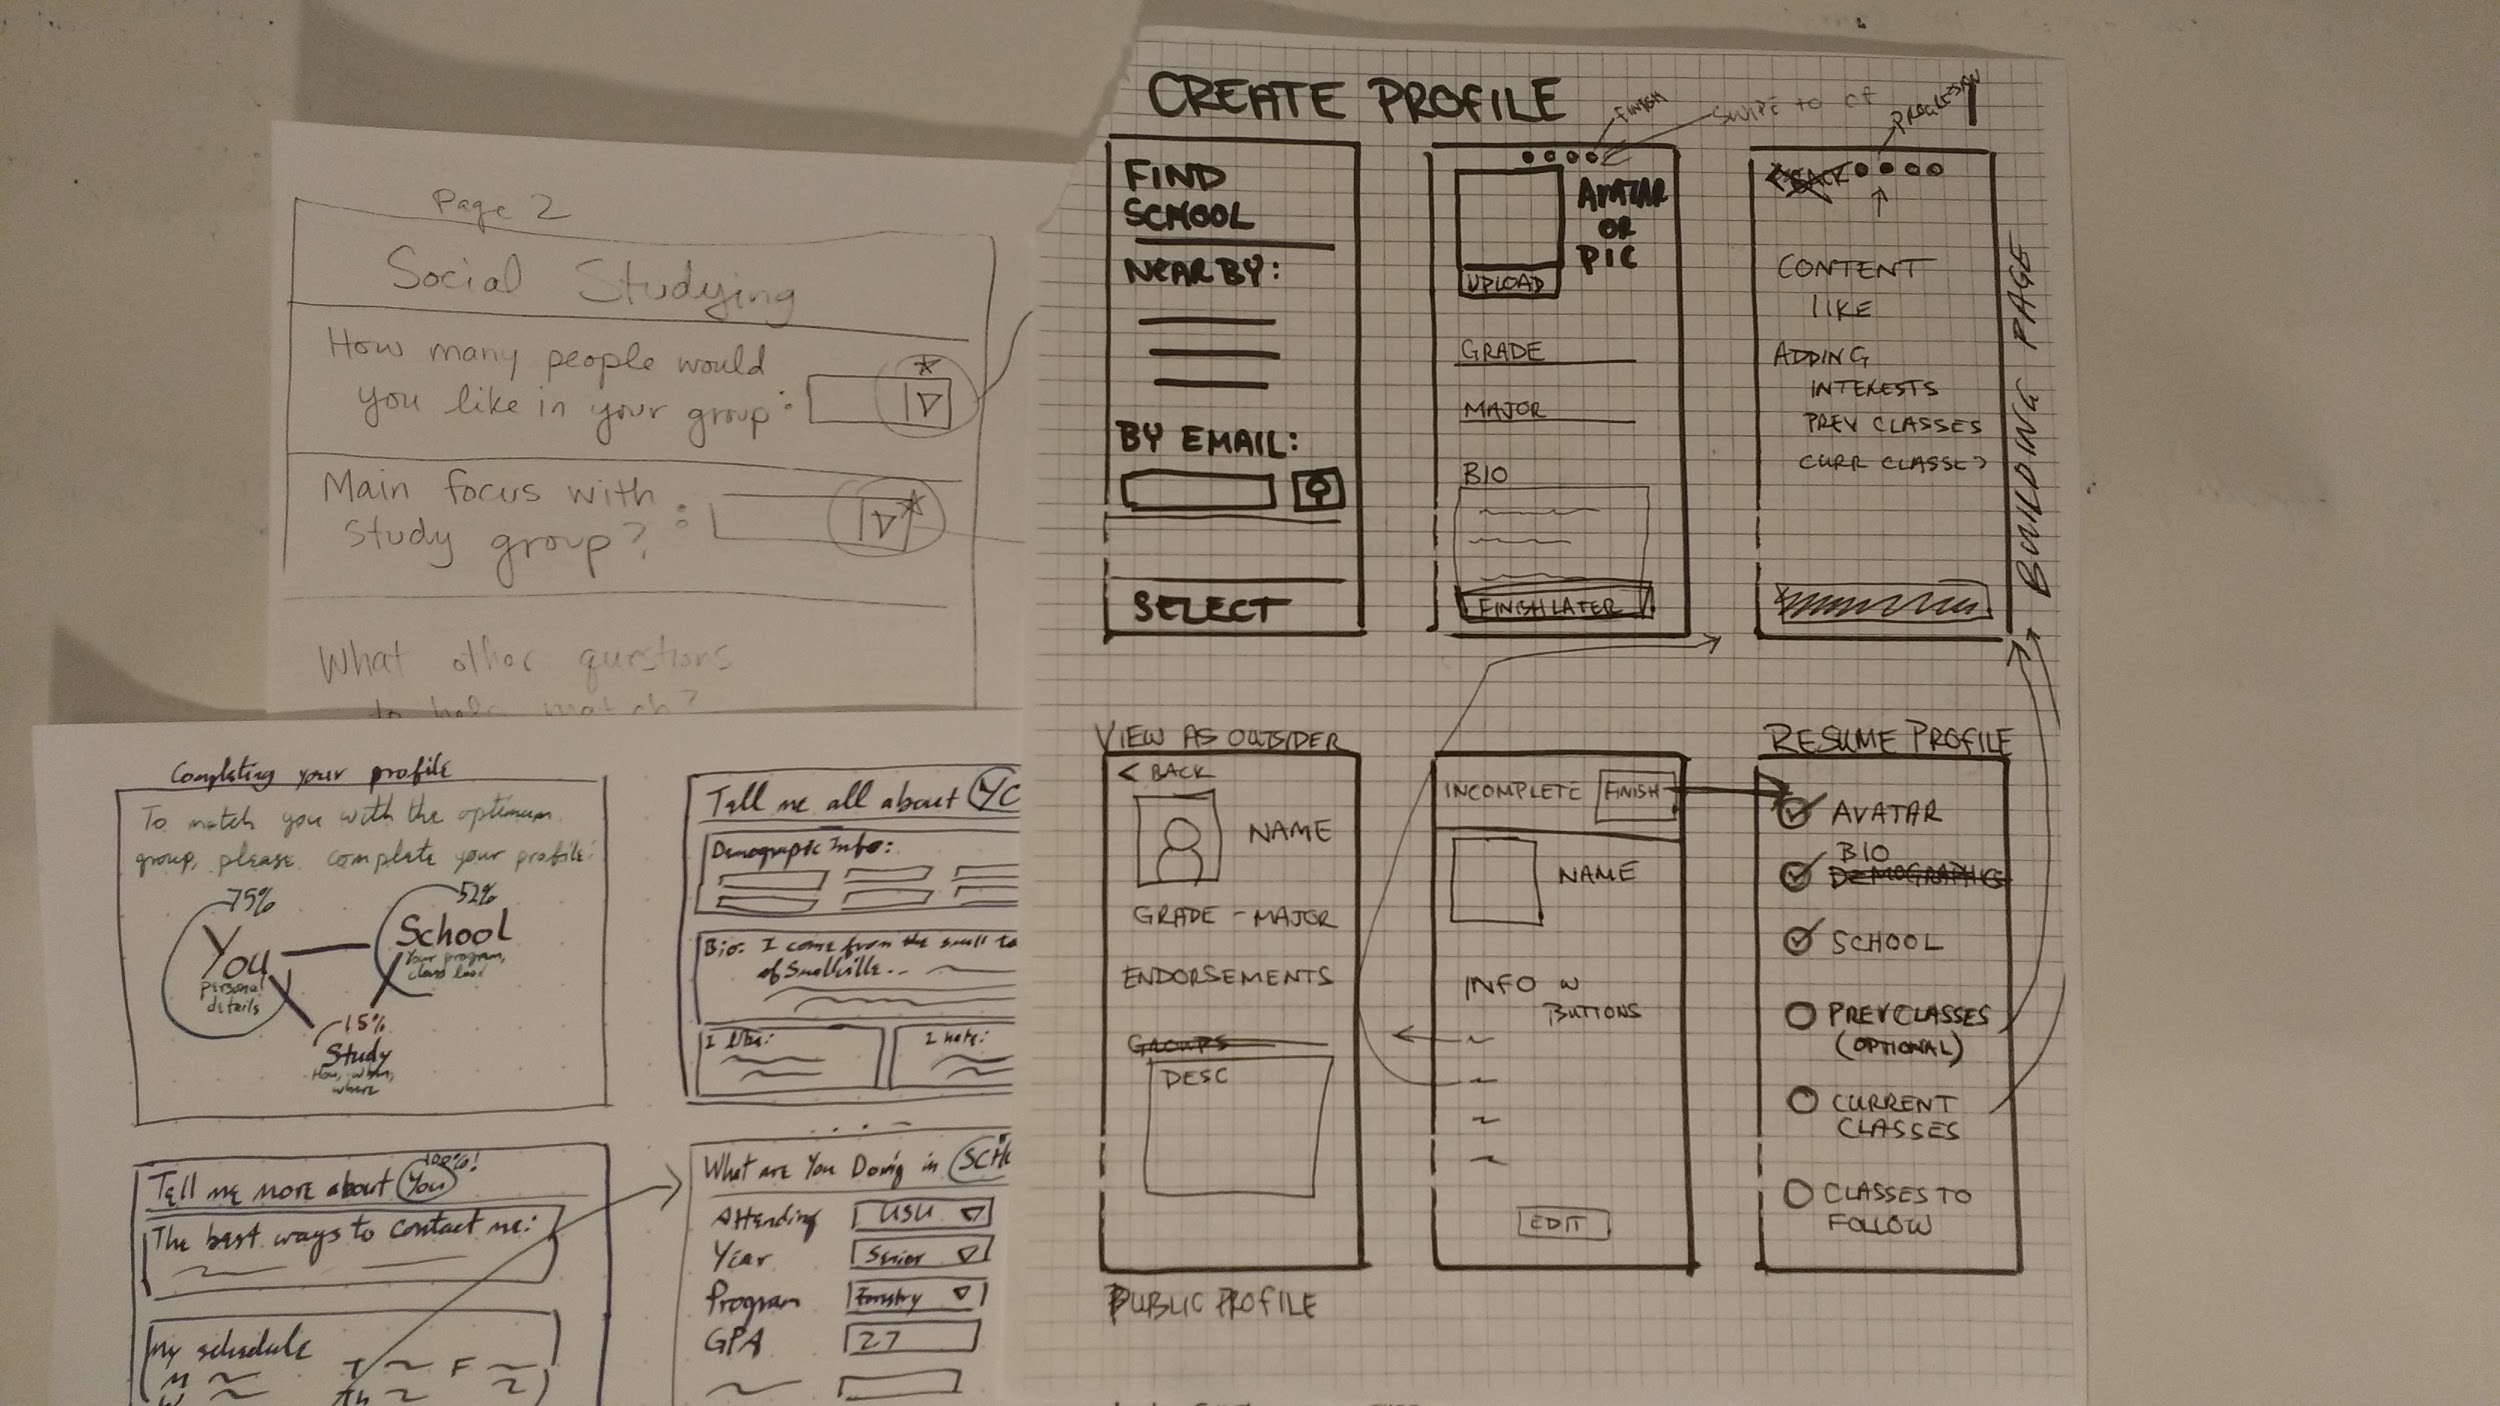 Page 2
Social Studying
How many people would
you like in your group:
Main focus with
study group?:
What other questions
to help match?
Completing your profile
To match you with the optimum
group, please complete your profile:
75%
You
personal
details
52%
School
Your program,
class load
15%
Study
How, when,
where
Tell me all about
Demographic Info:
Bio: I come from the small to
of Smallville...
I like:
I hate:
Tell me more about You
100%!
The best ways to contact me:
My schedule
M
T
F
W
Th
What are You Doing in
Attending USU
Year Senior
Program Forestry
GPA 2.7
CREATE PROFILE
FINISH
SWIPE to
PROGRESSION
FIND
SCHOOL
NEAR BY:
BY EMAIL:
SELECT
AVATAR
OR
PIC
UPLOAD
GRADE
MAJOR
BIO
FINISH LATER
< BACK
CONTENT
LIKE
ADDING
INTERESTS
PREV CLASSES
CURR CLASSES
BUILDING PAGE
VIEW AS OUTSIDER
< BACK
NAME
GRADE - MAJOR
ENDORSEMENTS
GROUPS
DESC
PUBLIC PROFILE
INCOMPLETE FINISH
NAME
INFO W
BUTTONS
EDIT
RESUME PROFILE
AVATAR
BIO
DEMOGRAPHICS
SCHOOL
PREV CLASSES
(OPTIONAL)
CURRENT
CLASSES
CLASSES TO
FOLLOW